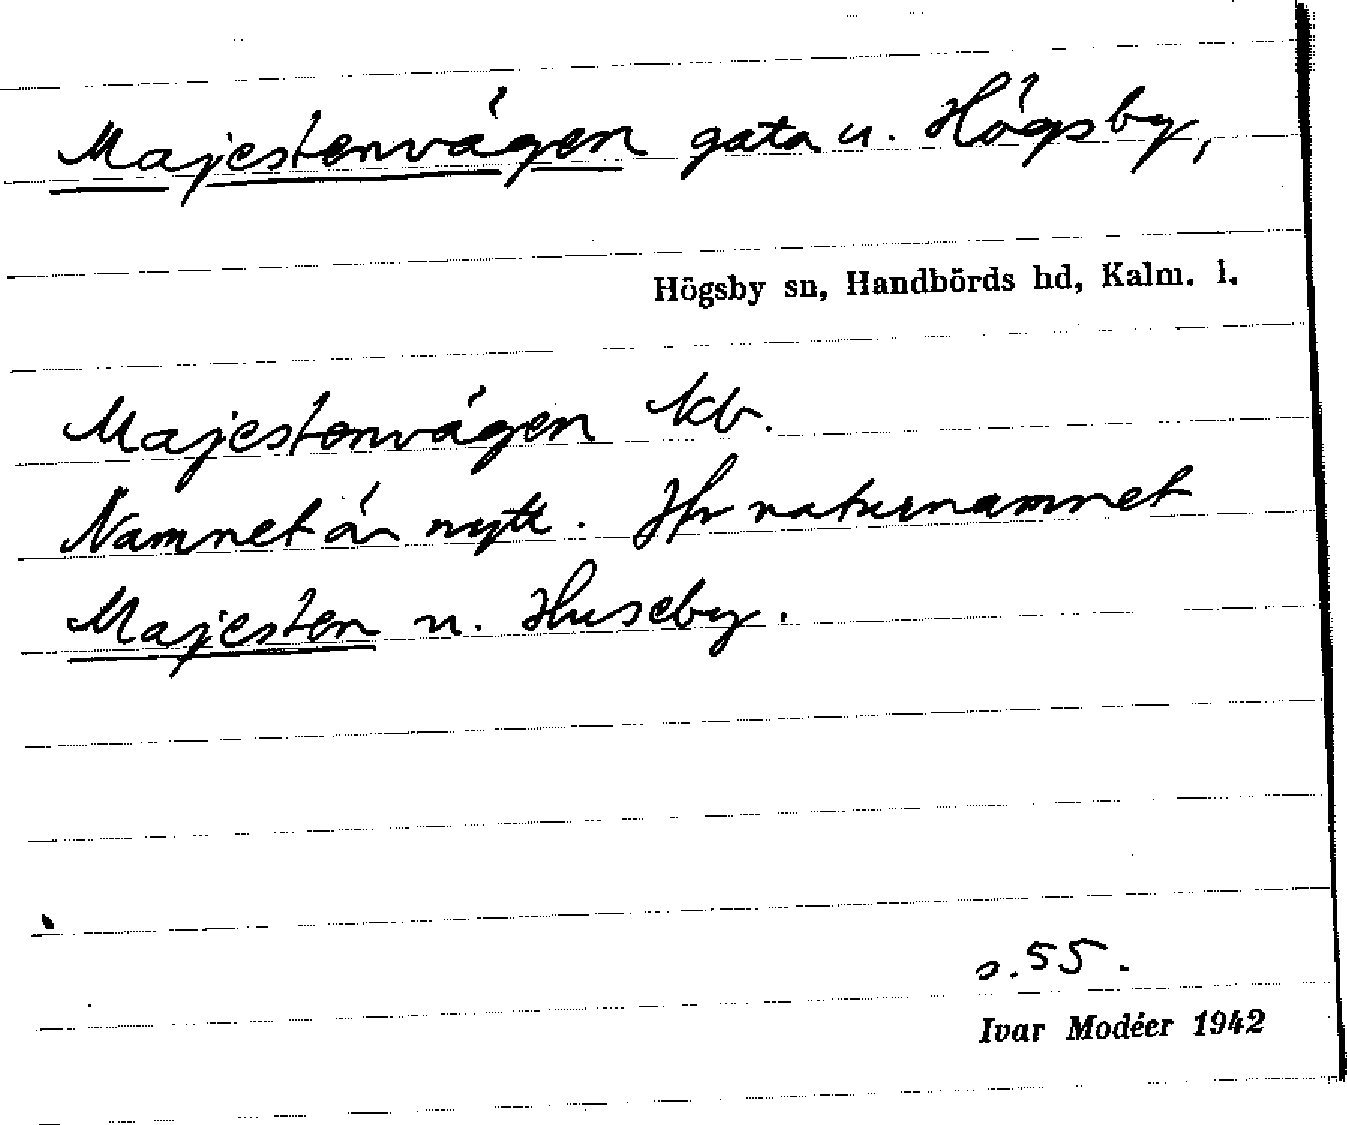 Majestenvägen gata u. Högsby,
Högsby sn, Handbörds hd, Kalm. l.
Majestenvägen kb.
Namnet är nytt. Jfr naturnamnet
Majesten u. Huseby.
s. 55.
Ivar Modéer 1942